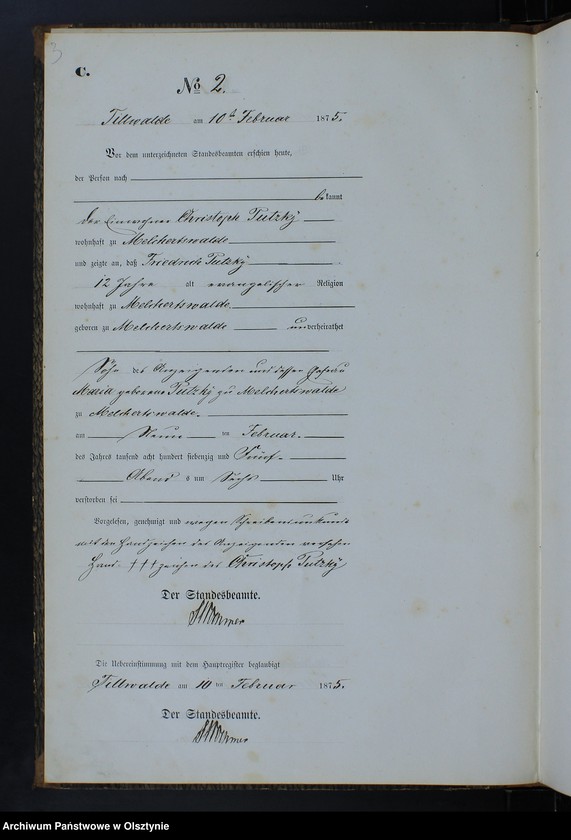 3
C.
No 2.
Tillwalde am 10t Februar 1875.
Vor dem unterzeichneten Standesbeamten erschien heute,
der Person nach
bekannt
der Einwohner Christoph Putzky
wohnhaft zu Melchertswalde
und zeigte an, daß Friedrich Putzky
12 Jahre alt evangelischer Religion
wohnhaft zu Melchertswalde
geboren zu Melchertswalde unverheirathet
Sohn des Anzeigenden und dessen Ehefrau
Maria geborene Putzky zu Melchertswalde
zu Melchertswalde.
am Neun ten Februar.
des Jahres tausend acht hundert siebenzig und Fünf
Abend s um Sechs Uhr
verstorben sei
Vorgelesen, genehmigt und wegen Schreibensunkunde
mit den Handzeichen des Anzeigenden versehen
Hand- +++ zeichen des Christoph Putzky
Der Standesbeamte.
Die Uebereinstimmung mit dem Hauptregister beglaubigt
Tillwalde am 10 ten Februar 1875.
Der Standesbeamte.
Archiwum Państwowe w Olsztynie